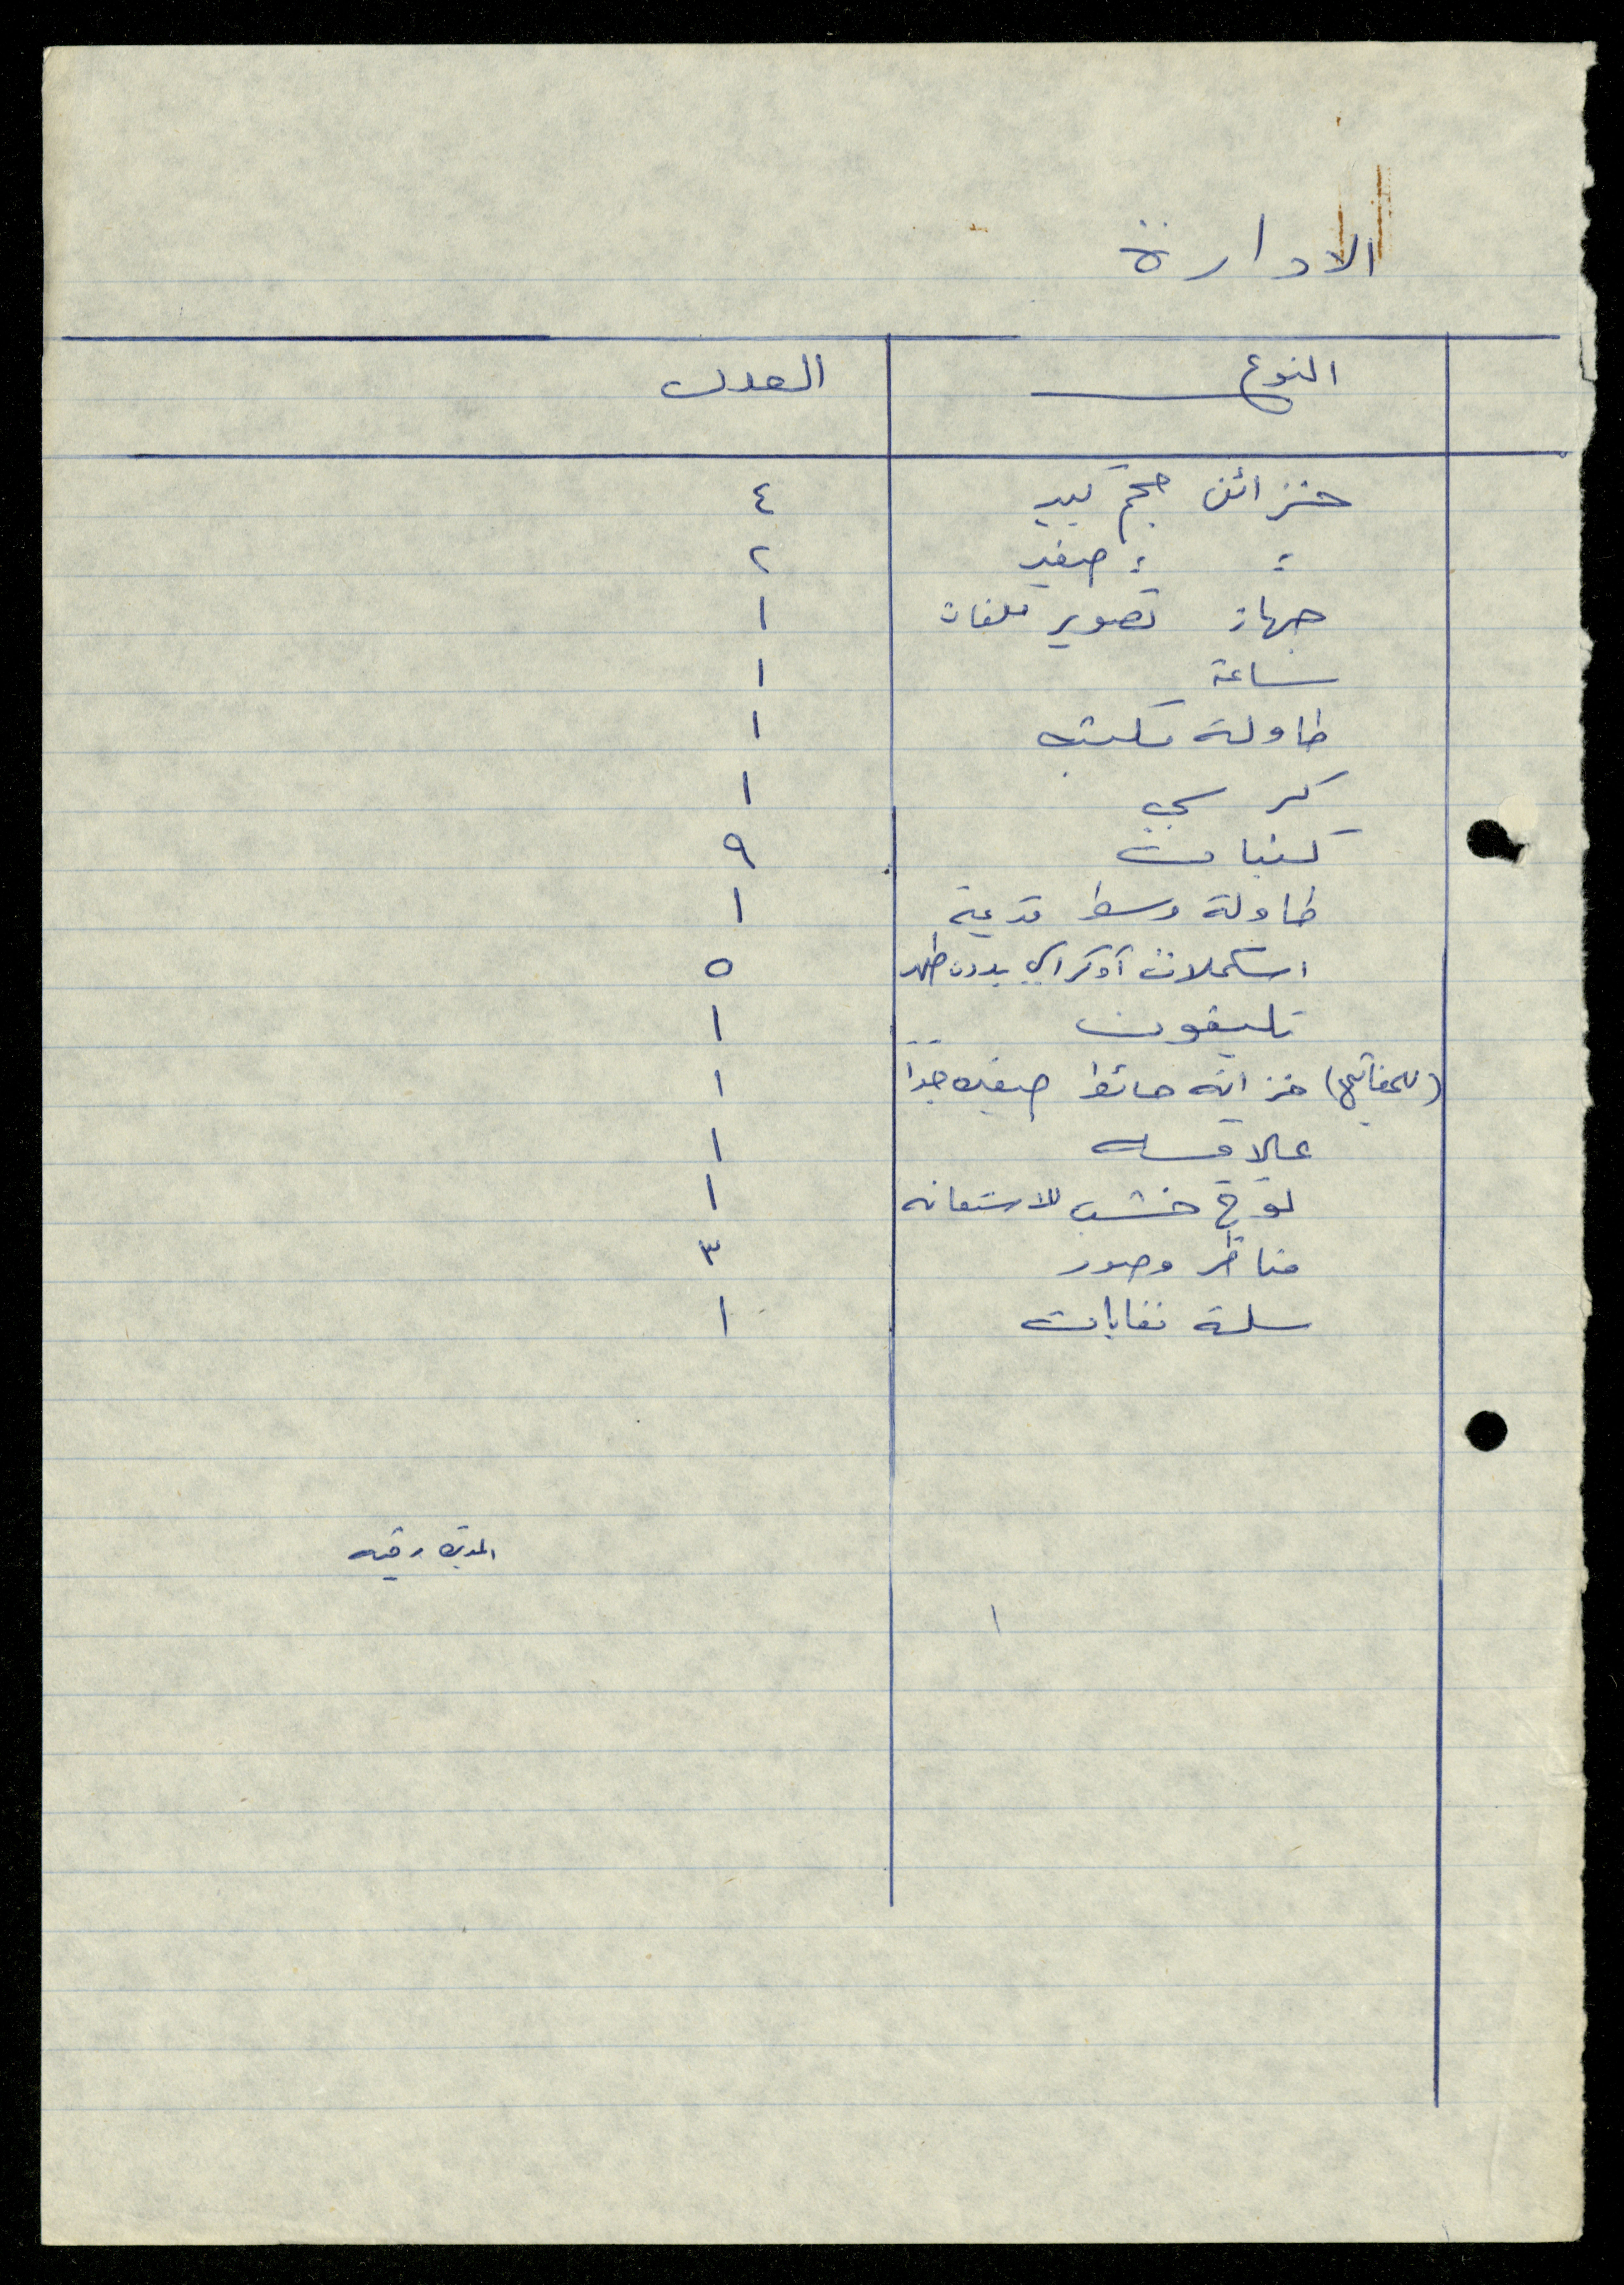 الادارة
النوع العدد
خزائن حجم كبير ٤
= = صغير ٢
جهاز تصوير ملفات ١
ساعة ١
طاولة مكتب ١
كرسي ١
كنبات ٩
طاولة وسط قديمة ١
اسكملات أوكراي بدون ظهر ٥
تليفون ١
(للمفاتيح) خزانه حائط صغيره جدا ١
علاقه ١
لوح خشب للاستعانه ١
مناظر وصور ٣
سلة نفايات ١
المديره رقيه
١